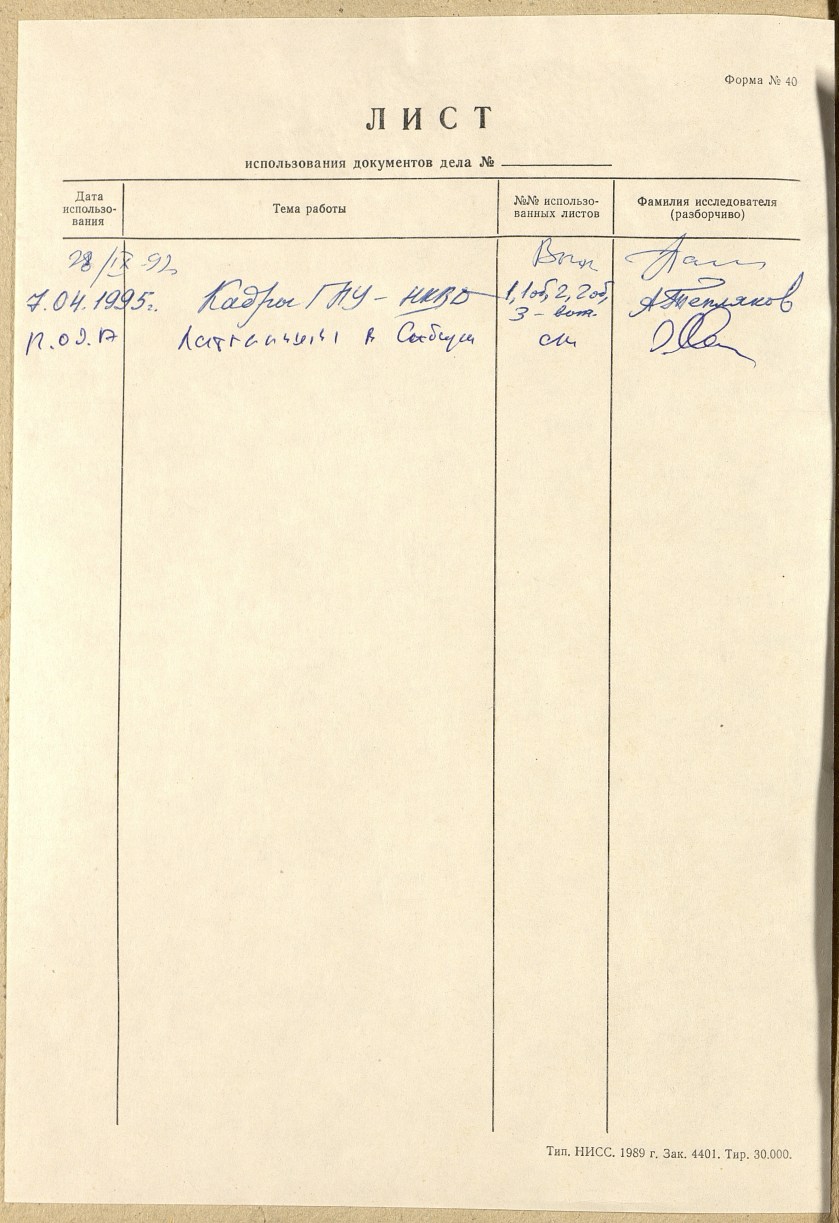 Форма № 40
ЛИСТ
использования документов дела №
Дата использо-вания
Тема работы
№№ использо-ванных листов
Фамилия исследователя (разборчиво)
28/IX-92
7.04.1995г. Кадры ГПУ – НКВД 1, 1об, 2, 2об, А Тепляков
3 – вып.
в Сибири см
Тип. НИСС. 1989 г. Зак. 4401. Тир. 30.000.